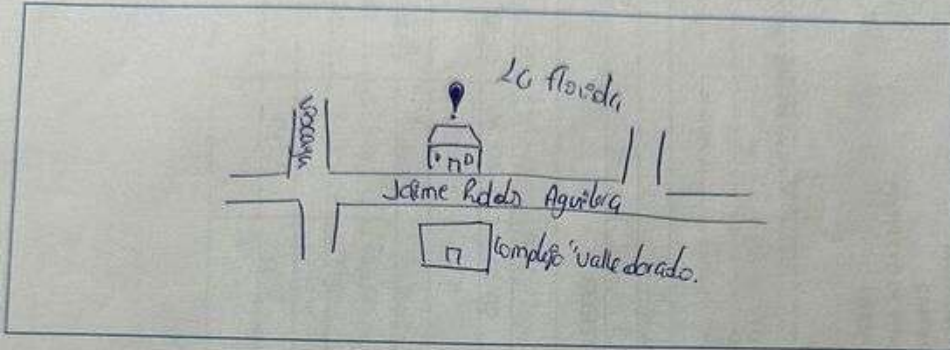 La florida
Jaime Roldos Aguilera
Complejo "valle dorado.